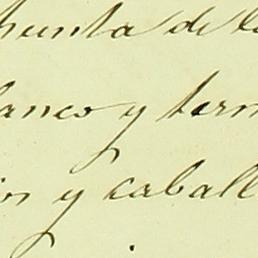 punta de
anco y tern
os y caball